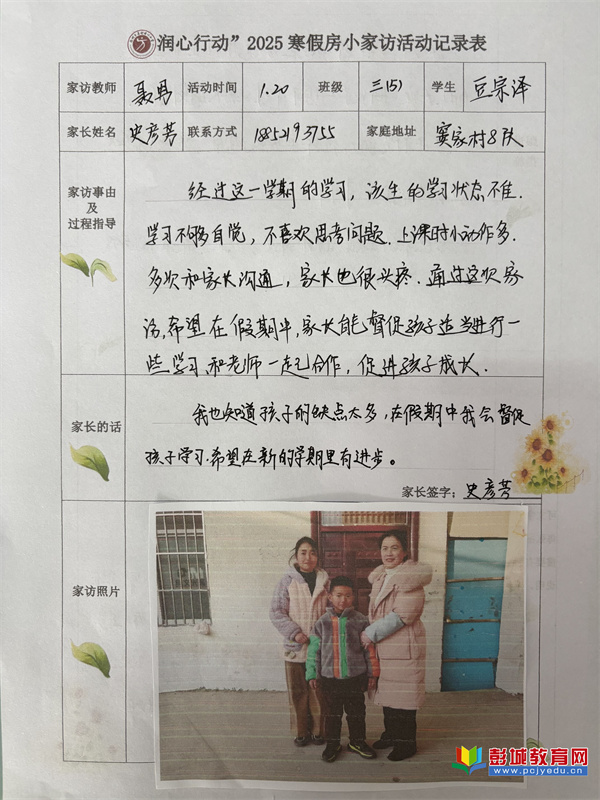 润心行动”2025寒假房小家访活动记录表
家访教师 聂男 活动时间 1.20 班级 三(5) 学生 豆宗泽
家长姓名 史彦芳 联系方式 18852193755 家庭地址 窦家村8队
家访事由
及
过程指导
经过这一学期的学习，该生的学习状态不佳.
学习不够自觉，不喜欢思考问题.上课时小动作多.
多次和家长沟通，家长也很头疼.通过这次家
访,希望在假期中,家长能督促孩子适当进行一
些学习,和老师一起合作，促进孩子成长.
家长的话
我也知道孩子的缺点太多，在假期中我会督促
孩子学习.希望在新的学期里有进步。
家长签字：史彦芳
家访照片
彭城教育网
www.pcjyedu.cn